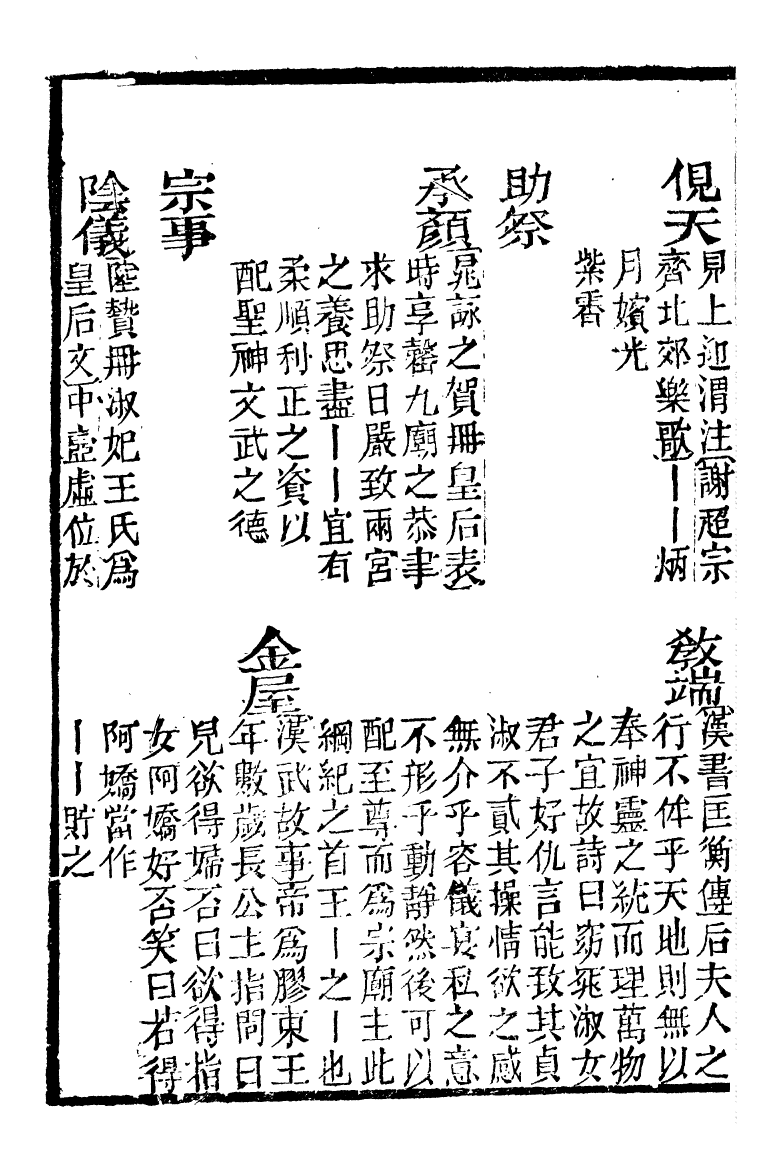 俔天
見上迎渭注謝超宗
齊北郊樂歌丨丨炳
月嬪光
紫霄
助祭
承顏
晁詠之賀冊皇后表
時享罄九廟之恭聿
求助祭日嚴致兩宮
之養思盡丨丨宜有
柔順利正之資以
配聖神文武之德
宗事
陰儀
陸贄冊淑妃王氏為
皇后文中壼虛位於
教端
漢書匡衡傳后夫人之
行不侔乎天地則無以
奉神靈之統而理萬物
之宜故詩曰窈窕淑女
君子好仇言能致其貞
淑不貳其操情欲之感
無介乎容儀宴私之意
不形乎動靜然後可以
配至尊而為宗廟主此
綱紀之首王丨之丨也
金屋
漢武故事帝為膠東王
年數歲長公主指問曰
兒欲得婦否曰欲得指
女阿嬌好否笑曰若得
阿嬌當作
丨丨貯之